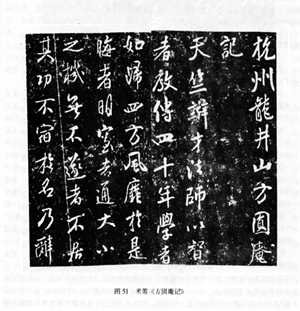 杭州龍井山方圓庵
記
天竺辯才法師以智
者教傳四十年學者
如歸四方風靡於是
晦者明窒者通大小
之機無不遂者不居
其功不宿於名乃辭
图51 米芾《方圆庵记》